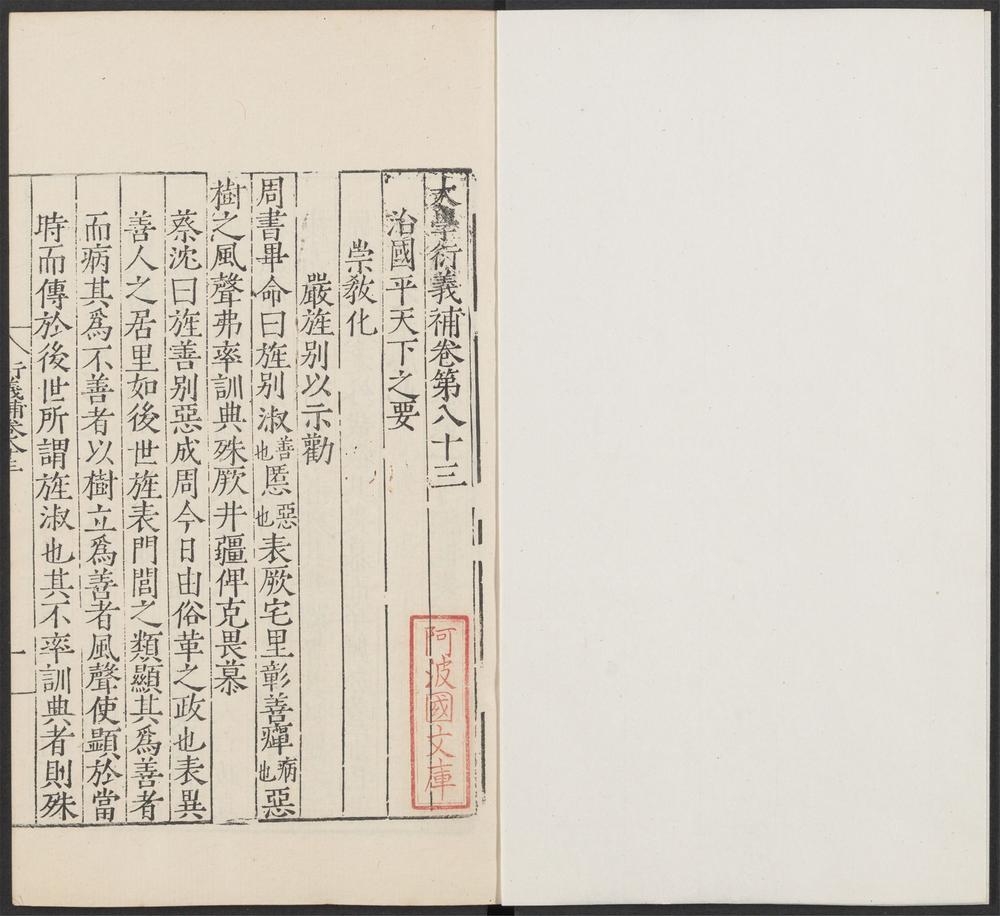 大學衍義補卷第八十三
治國平天下之要
崇敎化
嚴旌别以示勸
周書畢命曰旌别淑善也慝惡也表厥宅里彰善癉病也惡
樹之風聲弗率訓典殊厥井疆俾克畏慕
蔡沈曰旌善别惡成周今日由俗革之政也表異
善人之居里如後世旌表門閭之類顯其爲善者
而病其爲不善者以樹立爲善者風聲使顯於當
時而傳於後世所謂旌淑也其不率訓典者則殊
衍義補卷八十三
一
阿波國文庫